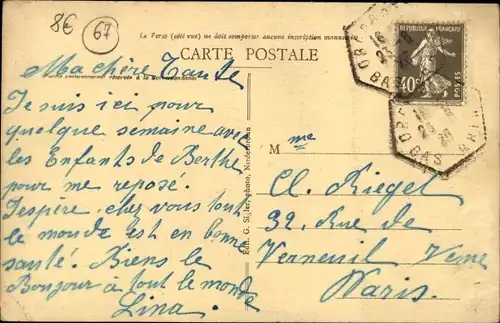 8€
67
Le Verso (côté vue) ne doit comporter aucune inscription manuscrite
CARTE POSTALE
Ma chère Tante
Je suis ici pour
quelque semaine avec
les Enfants de Berthe
pour me reposé.
J'espère chez vous tout
le monde est en bonne
santé. Biens le
Bonjour à tout le monde
Lina.
Édit. G. Sigler, photo, Niederbronn
Mme
Cl. Riegel
32, Rue de
Verneuil
Paris.
RÉPUBLIQUE FRANÇAISE
40c
POSTES
BAS RHIN
BAS RHIN